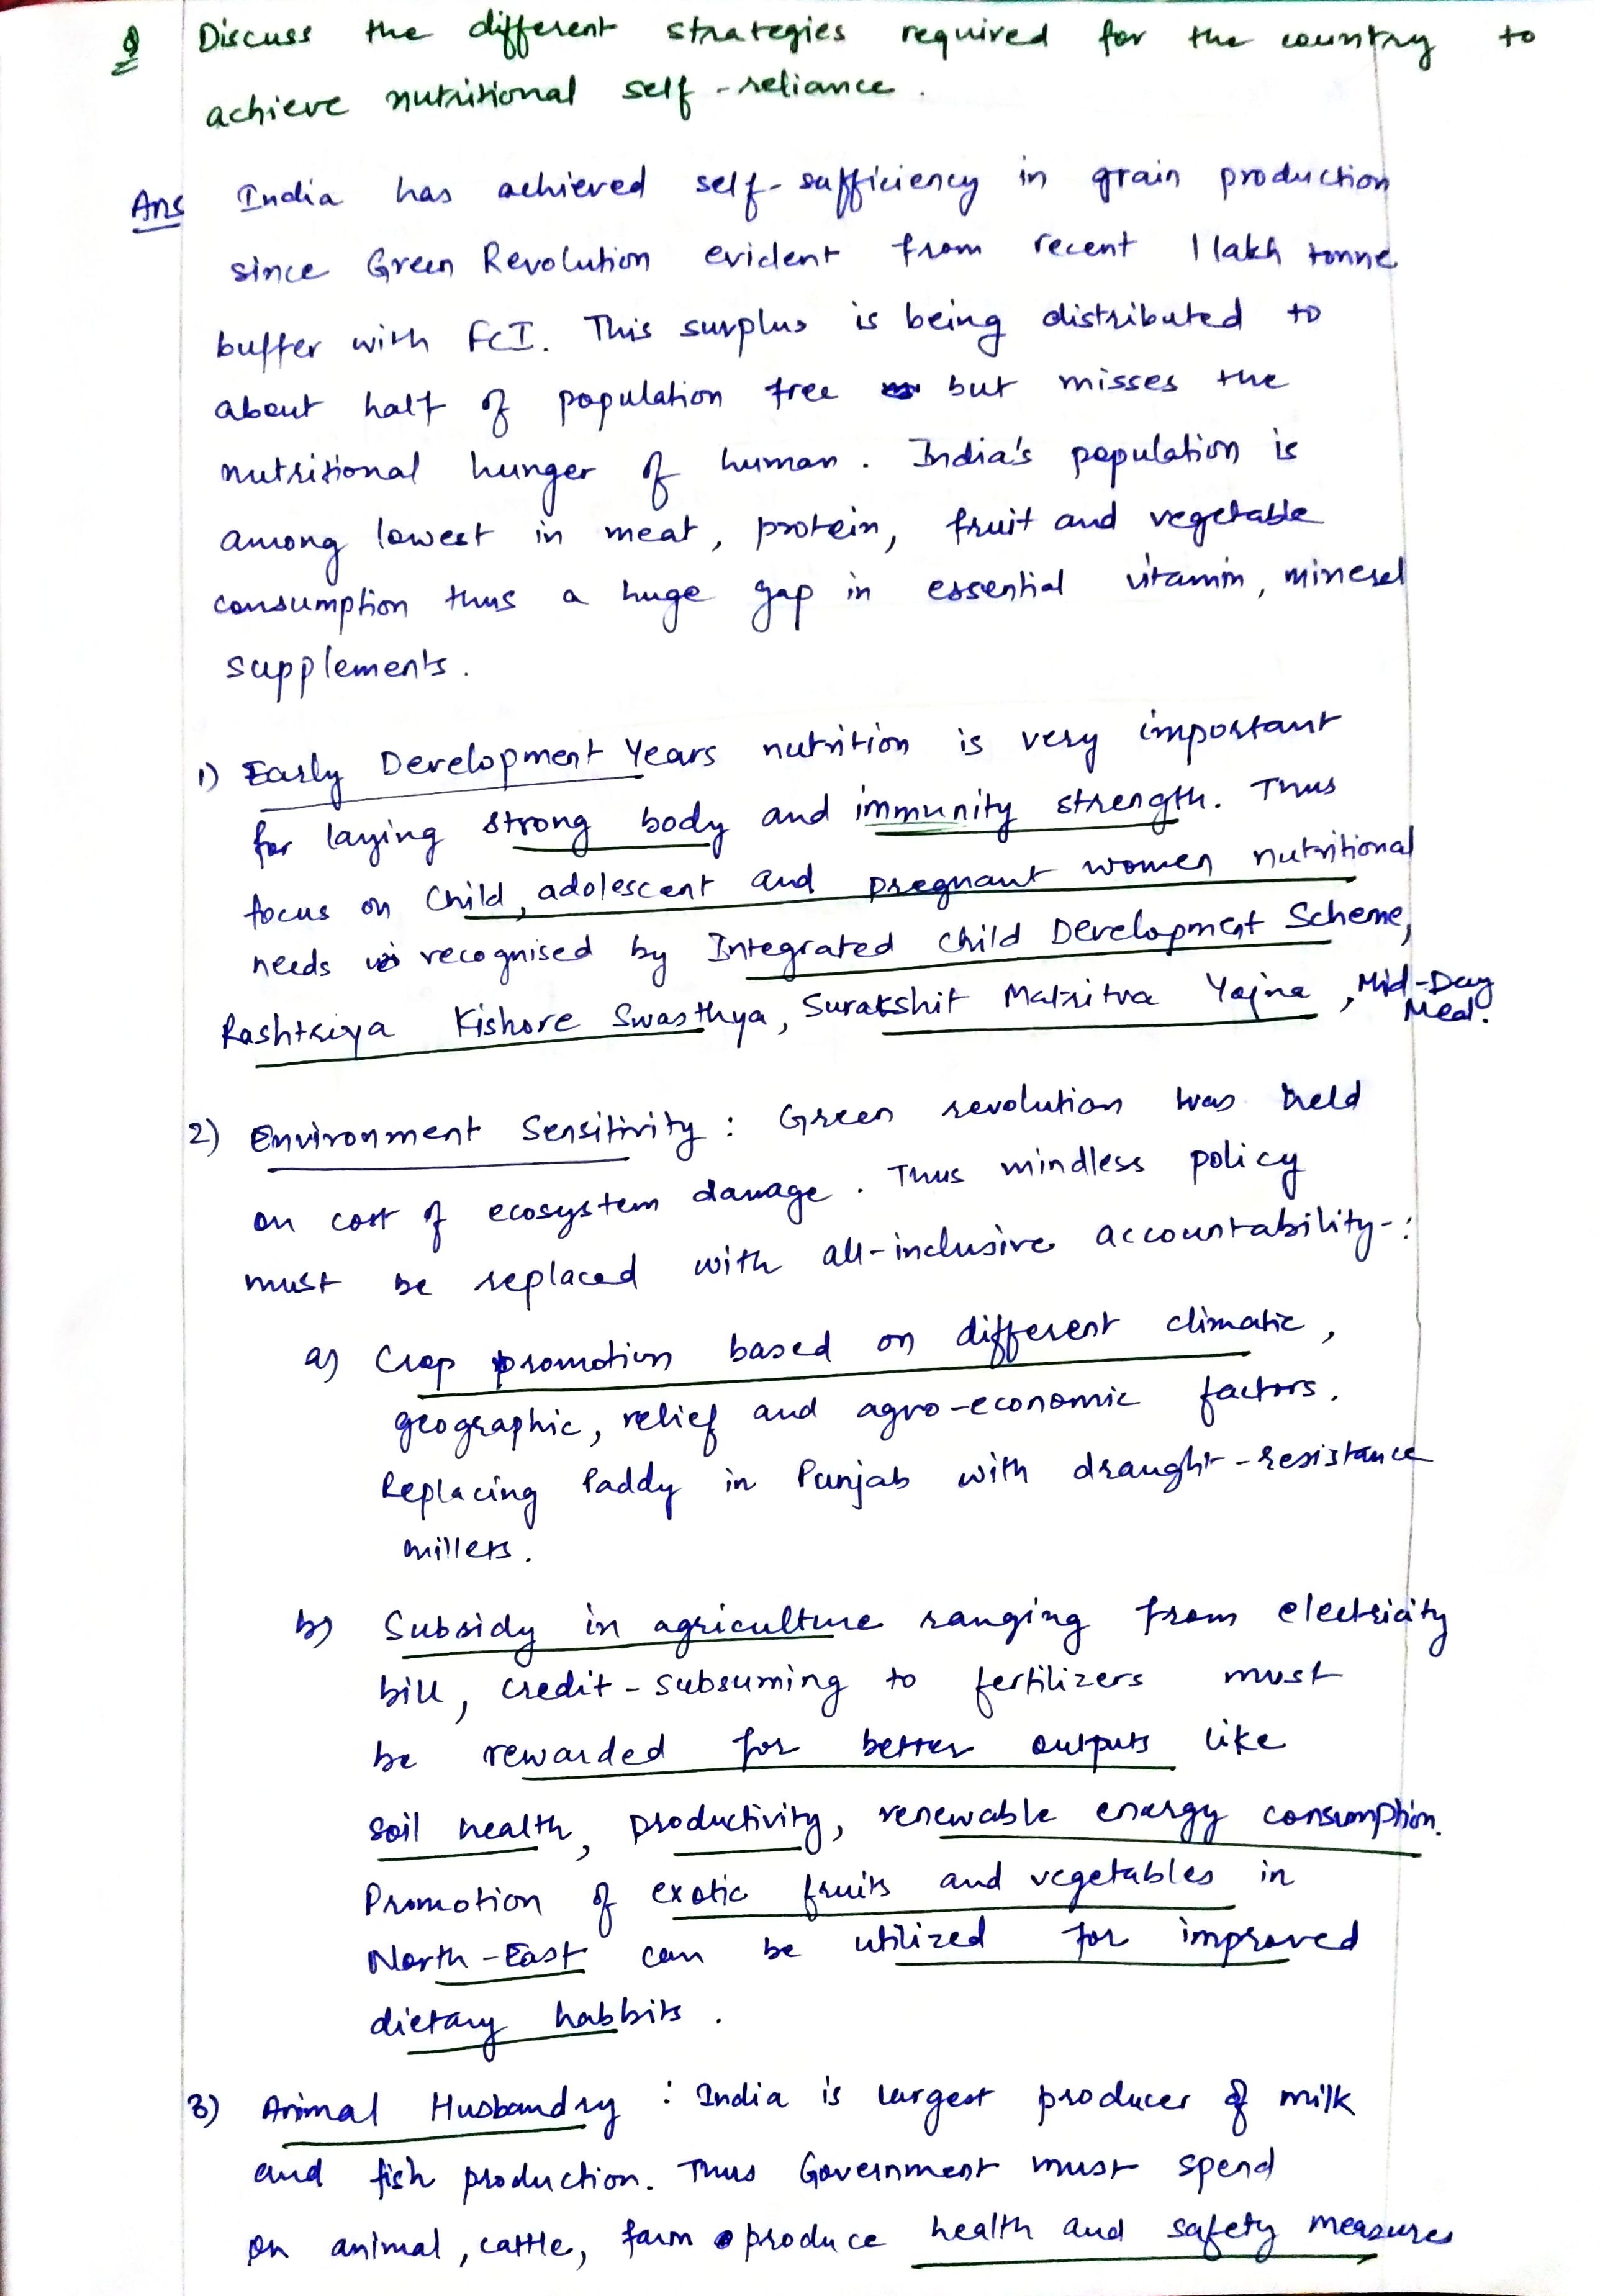 Q Discuss the different strategies required for the country to
achieve nutritional self-reliance.
Ans India has achieved self-sufficiency in grain production
since Green Revolution evident from recent 1 lakh tonne
buffer with FCI. This surplus is being distributed to
about half of population free but misses the
nutritional hunger of human. India's population is
among lowest in meat, protein, fruit and vegetable
consumption thus a huge gap in essential vitamin, mineral
supplements.
1) Early Development Years nutrition is very important
for laying strong body and immunity strength. Thus
focus on Child, adolescent and pregnant women nutritional
needs is recognised by Integrated Child Development Scheme,
Rashtriya Kishore Swasthya, Surakshit Matritva Yojna, Mid-Day
Meal.
2) Environment Sensitivity : Green revolution was held
on cost of ecosystem damage. Thus mindless policy
must be replaced with all-inclusive accountability-:
a) Crop promotion based on different climatic,
geographic, relief and agro-economic factors.
Replacing Paddy in Punjab with draught-resistance
millets.
b) Subsidy in agriculture ranging from electricity
bill, credit-subsuming to fertilizers must
be rewarded for better outputs like
soil health, productivity, renewable energy consumption.
Promotion of exotic fruits and vegetables in
North-East can be utilized for improved
dietary habbits.
3) Animal Husbandry : India is largest producer of milk
and fish production. Thus Government must spend
on animal, cattle, farm produce health and safety measures